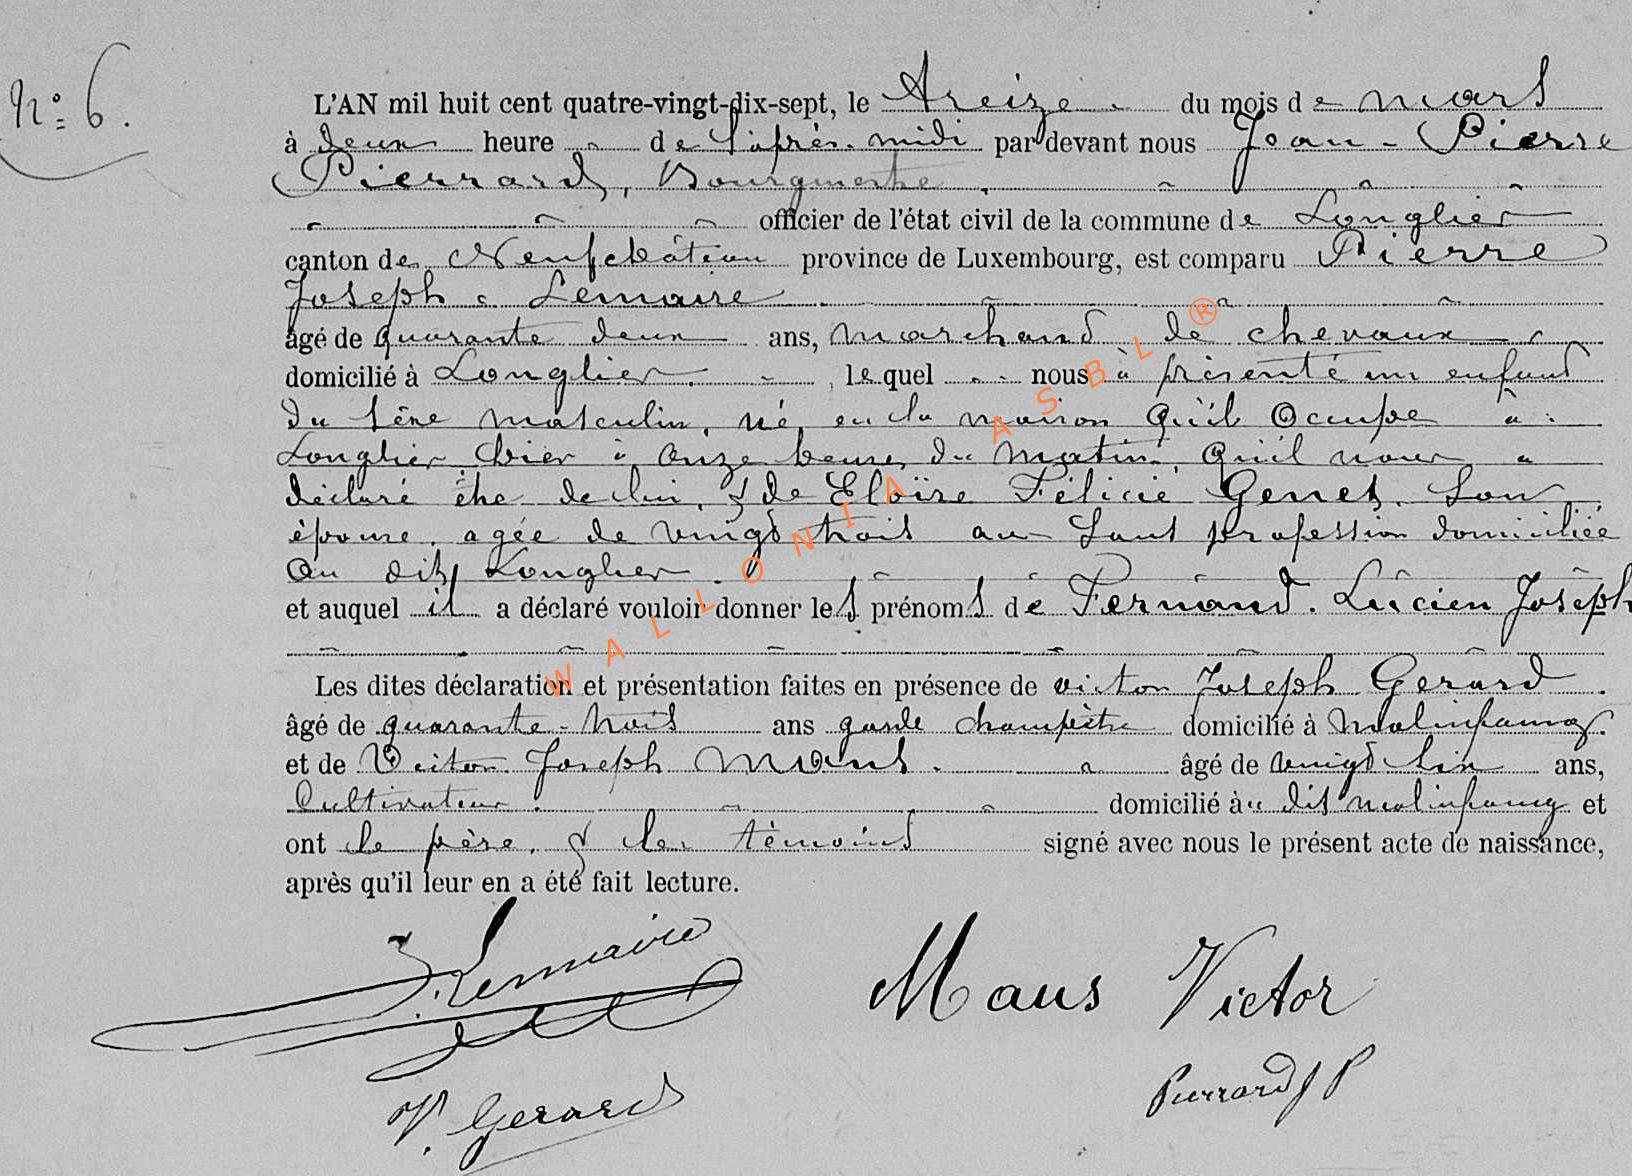 N°= 6.
L'AN mil huit cent quatre-vingt-dix-sept, le treize du mois de mars
à deux heure de l'après-midi par devant nous Jean-Pierre
Pierrard, Bourgmestre
officier de l'état civil de la commune de Longlier
canton de Neufchâteau province de Luxembourg, est comparu Pierre
Joseph Lemaire
âgé de quarante deux ans, marchand de chevaux
domicilié à Longlier. lequel nous à présenté un enfant
du sexe masculin, né en la maison qu'il occupe à
Longlier hier à onze heures du matin, qu'il nous a
déclaré être de lui, & de Eloïse Félicie Genet, son
épouse, agée de vingt trois ans sans profession domiciliée
au dit Longlier.
et auquel il a déclaré vouloir donner les prénoms de Fernand. Lucien Joseph
Les dites déclaration et présentation faites en présence de victor Joseph Gerard
âgé de quarante-trois ans garde champêtre domicilié à Molinfaing.
et de Victor Joseph Maus. âgé de vingt six ans,
Cultivateur. domicilié au dit molinfaing et
ont le père, & les témoins signé avec nous le présent acte de naissance,
après qu'il leur en a été fait lecture.
J. Lemaire
Maus Victor
V. Gerard
Pierrard J P
WALLONIA ASBL ®